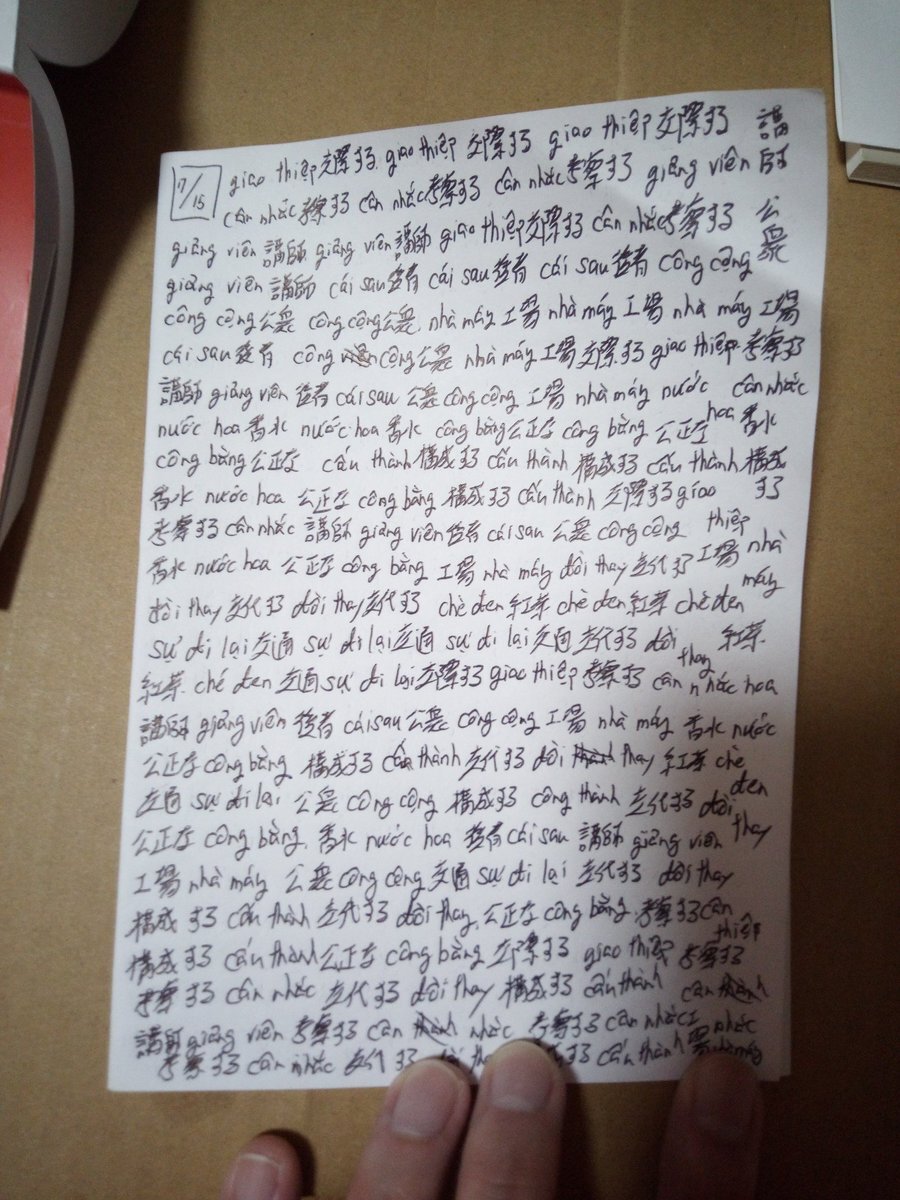 17/15 giao thiệp 交際する giao thiệp 交際する giao thiệp 交際する 講
cân nhắc 考察する cân nhắc 考察する cân nhắc 考察する giảng viên 師
giảng viên 講師 giảng viên 講師 giao thiệp 交際する cân nhắc 考察する 公
giảng viên 講師 cái sau 後者 cái sau 後者 cái sau 後者 công cộng 衆
công cộng 公衆 công cộng 公衆, nhà máy 工場 nhà máy 工場 nhà máy 工場
cái sau 後者 công cộng 公衆 nhà máy 工場 交際する giao thiệp 考察する
講師 giảng viên 後者 cái sau 公衆 công cộng 工場 nhà máy nước cân nhắc
nước hoa 香水 nước hoa 香水 công bằng 公正な công bằng 公正な hoa 香水
công bằng 公正な cấu thành 構成する cấu thành 構成する cấu thành 構成
香水 nước hoa 公正な công bằng 構成する cấu thành 交際する giao する
考察する cân nhắc 講師 giảng viên 後者 cái sau 公衆 công cộng thiệp
香水 nước hoa 公正な công bằng 工場 nhà máy đồi thay 交代する 工場 nhà
đồi thay 交代する đồi thay 交代する chè đen 紅茶 chè đen 紅茶 chè đen máy
sự đi lại 交通 sự đi lại 交通 sự đi lại 交通 交代する đồi 紅茶
紅茶 chè đen 交通 sự đi lại 交際する giao thiệp 考察する cân nhắc thay hoa
講師 giảng viên 後者 cái sau 公衆 công cộng 工場 nhà máy 香水 nước
公正な công bằng 構成する cấu thành 交代する đồi thay 紅茶 chè
交通 sự đi lại 公衆 công cộng 構成する công thành 交代する đồi đen
公正な công bằng, 香水 nước hoa 後者 cái sau 講師 giảng viên thay
工場 nhà máy 公衆 công cộng 交通 sự đi lại 交代する đồi thay
構成する cấu thành 交代する đồi thay, 公正な công bằng, 考察する cân
構成する cấu thành 公正な công bằng 交際する giao thiệp 考察する thiệp
考察する cân nhắc 交代する đồi thay 構成する cấu thành cân
講師 giảng viên 考察する cân nhắc 考察する cân nhắc nhắc
考察する cân nhắc 交代する cấu thành nhà máy